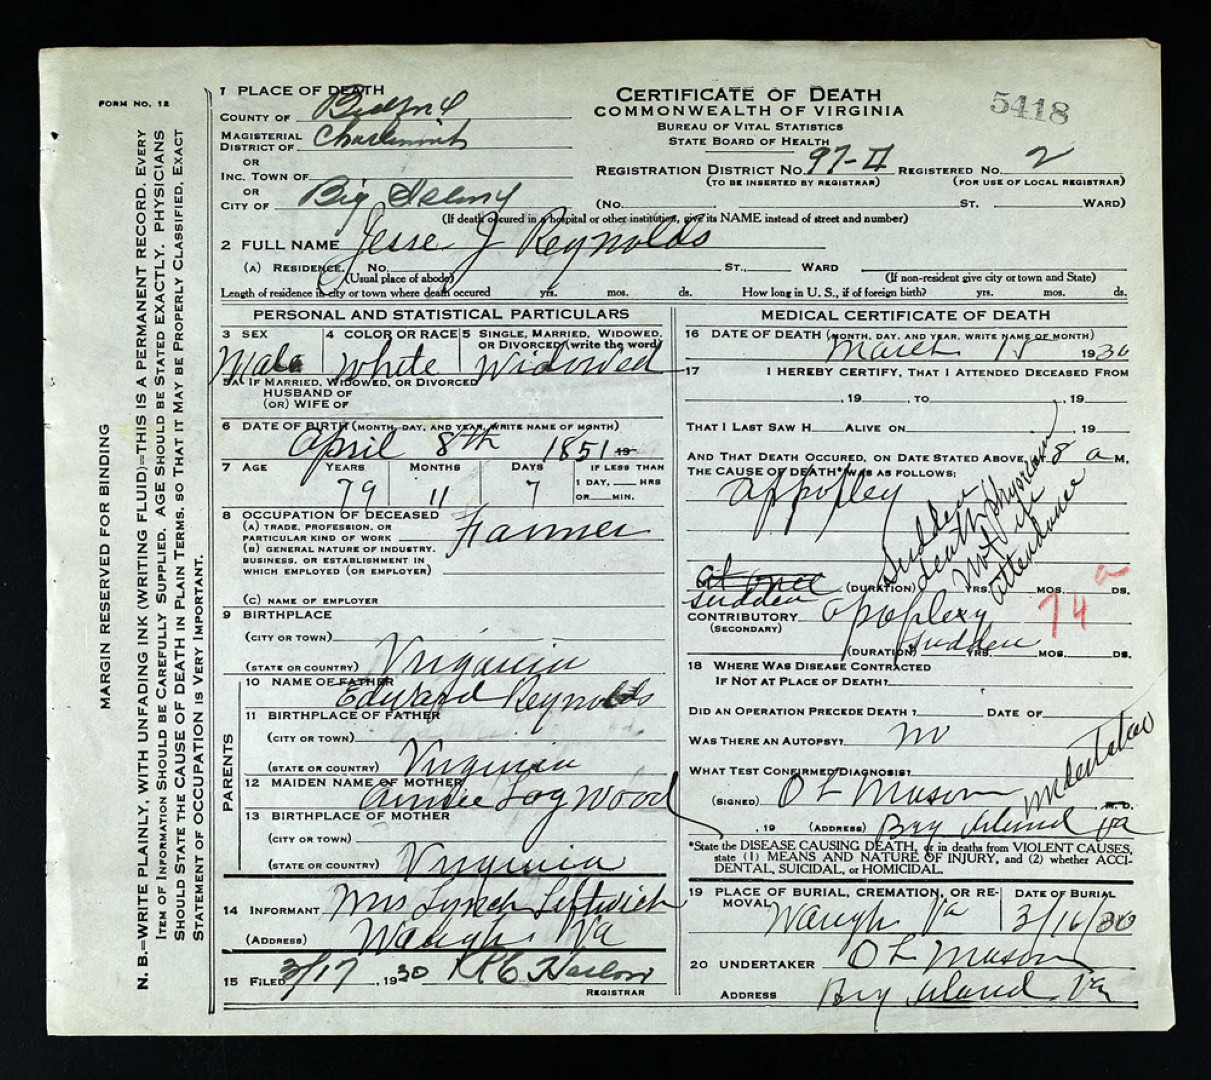 FORM NO. 12
MARGIN RESERVED FOR BINDING
N. B.=WRITE PLAINLY, WITH UNFADING INK (WRITING FLUID)=THIS IS A PERMANENT RECORD. EVERY
ITEM OF INFORMATION SHOULD BE CAREFULLY SUPPLIED. AGE SHOULD BE STATED EXACTLY. PHYSICIANS
SHOULD STATE THE CAUSE OF DEATH IN PLAIN TERMS, SO THAT IT MAY BE PROPERLY CLASSIFIED. EXACT
STATEMENT OF OCCUPATION IS VERY IMPORTANT.
1 PLACE OF DEATH
COUNTY OF Bedford
MAGISTERIAL
DISTRICT OF Charlemont
OR
INC. TOWN OF
OR
CITY OF Big Island
CERTIFICATE OF DEATH
COMMONWEALTH OF VIRGINIA
BUREAU OF VITAL STATISTICS
STATE BOARD OF HEALTH
5418
REGISTRATION DISTRICT NO. 97-II REGISTERED NO. 2
(TO BE INSERTED BY REGISTRAR) (FOR USE OF LOCAL REGISTRAR)
(NO. ST. WARD)
(If death occured in a hospital or other institution, give its NAME instead of street and number)
2 FULL NAME Jesse J Reynolds
(A) RESIDENCE. NO. ST., WARD
(Usual place of abode) (If non-resident give city or town and State)
Length of residence in city or town where death occured yrs. mos. ds. How long in U. S., if of foreign birth? yrs. mos. ds.
PERSONAL AND STATISTICAL PARTICULARS
3 SEX 4 COLOR OR RACE 5 SINGLE, MARRIED, WIDOWED,
OR DIVORCED (write the word)
Male White Widowed
5A IF MARRIED, WIDOWED, OR DIVORCED
HUSBAND OF
(OR) WIFE OF
6 DATE OF BIRTH (MONTH, DAY, AND YEAR, WRITE NAME OF MONTH)
April 8th 1851 19
7 AGE YEARS MONTHS DAYS IF LESS THAN
1 DAY, HRS
79 11 7 OR MIN.
8 OCCUPATION OF DECEASED
(A) TRADE, PROFESSION, OR
PARTICULAR KIND OF WORK Farmer
(B) GENERAL NATURE OF INDUSTRY.
BUSINESS, OR ESTABLISHMENT IN
WHICH EMPLOYED (OR EMPLOYER)
(C) NAME OF EMPLOYER
9 BIRTHPLACE
(CITY OR TOWN)
(STATE OR COUNTRY) Virginia
PARENTS
10 NAME OF FATHER
Edward Reynolds
11 BIRTHPLACE OF FATHER
(CITY OR TOWN)
(STATE OR COUNTRY) Virginia
12 MAIDEN NAME OF MOTHER
Logwood
13 BIRTHPLACE OF MOTHER
(CITY OR TOWN)
(STATE OR COUNTRY) Virginia
14 INFORMANT Mrs Lynch Leftwich
(ADDRESS) Waugh Va
15 FILED 3/17, 1930
REGISTRAR
MEDICAL CERTIFICATE OF DEATH
16 DATE OF DEATH (MONTH, DAY, AND YEAR, WRITE NAME OF MONTH)
March 15 1930
17 I HEREBY CERTIFY, THAT I ATTENDED DECEASED FROM
, 19 , TO , 19
THAT I LAST SAW H ALIVE ON , 19
AND THAT DEATH OCCURED, ON DATE STATED ABOVE, 8 a M.
THE CAUSE OF DEATH* WAS AS FOLLOWS:
appopley
Sudden
death physician
Not in
attendance
at once (DURATION) YRS. MOS. DS.
sudden
CONTRIBUTORY apoplexy 74 a
(SECONDARY) sudden
(DURATION) YRS. MOS. DS.
18 WHERE WAS DISEASE CONTRACTED
IF NOT AT PLACE OF DEATH?
DID AN OPERATION PRECEDE DEATH? DATE OF
WAS THERE AN AUTOPSY? no
WHAT TEST CONFIRMED DIAGNOSIS?
(SIGNED) O L Mason undertaker, M. D.
, 19 (ADDRESS) Big Island Va
*State the DISEASE CAUSING DEATH, or in deaths from VIOLENT CAUSES,
state (1) MEANS AND NATURE OF INJURY, and (2) whether ACCI-
DENTAL, SUICIDAL, or HOMICIDAL.
19 PLACE OF BURIAL, CREMATION, OR RE- DATE OF BURIAL
MOVAL Waugh Va 3/16/30
20 UNDERTAKER O L Mason
ADDRESS Big Island Va